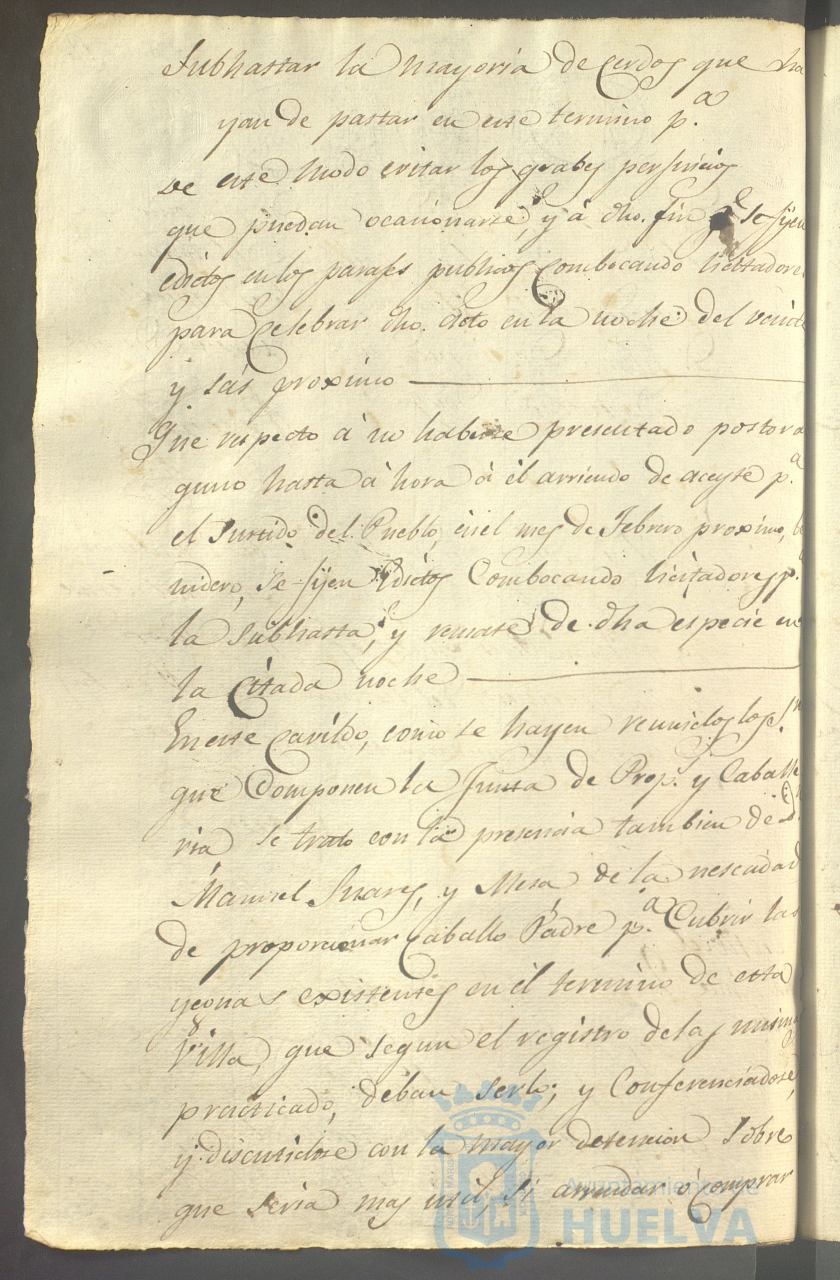 Subhastar la mayoria de Cerdos que ha
yan de pastar en este termino p.ª
de este modo evitar los grabes perjuicios
que puedan ocacionarse, y à dho. fin se fijen
edictos en los parajes publicos combocando licitadores
para Celebrar dho. Acto en la noche del veinte
y sàis proximo
Que respecto à no haberse presentado postor a
guno hasta à hora à el arriendo de aceyte p.ª
el Surtido del Pueblo, en el mes de Febrero proximo, be
nidero, se fijen Edictos Combocando licitadores p.ª
la Subhasta, y remate de dha especie en
la Citada noche
En este Cavildo, como se hayen reunidos los S.res
que Componen la Junta de Prop.s y Caballe
ria se trató con la presencia tambien de D.n
Manuel Suares, y Mesa de la nescidad
de proporcionar Caballo Padre p.ª Cubrir las
yeguas existentes en el termino de esta
Villa, que segun el registro de las mismas
practicado, deban serlo, y Conferenciadose,
y discutidose con la mayor detencion Sobre
que seria mas util, si arrendar ó comprar
Ayuntamiento de
HUELVA